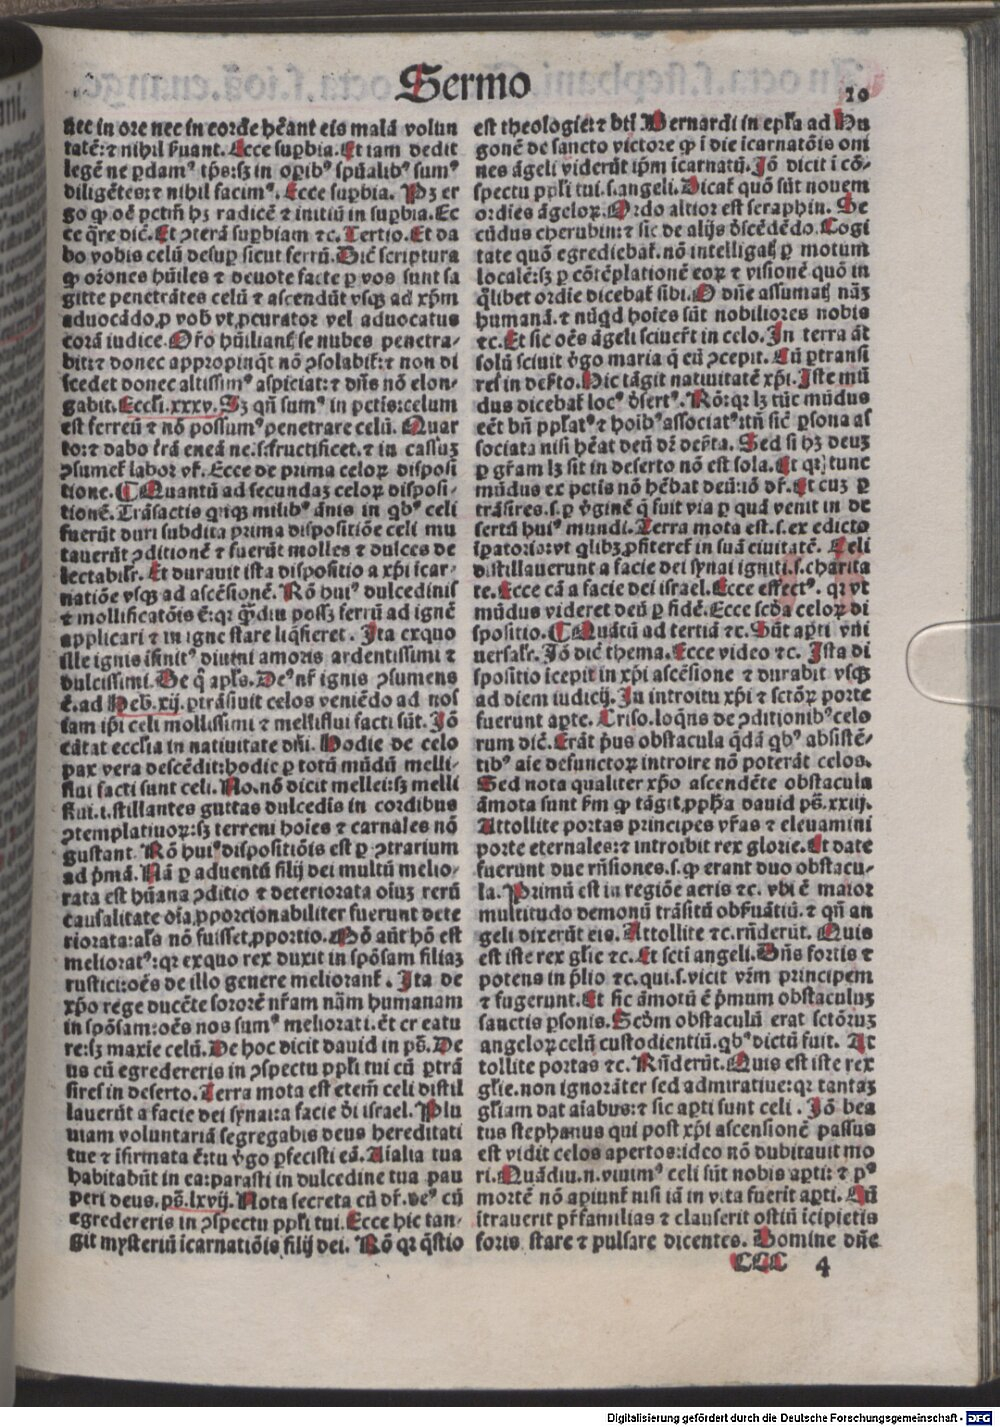 Sermo
10
nec in ore nec in corde hẽant eis malã volun
tatẽ: ⁊ nihil ẜuant. Ecce suꝑbia. Et iam dedit
legẽ ne ꝑdamꝰ tꝑs: sꝫ in oꝑibꝰ spũalibꝰ sumꝰ
diligẽtes: ⁊ nihil facimꝰ. Ecce suꝑbia. Pꝫ er
go ꝙ oẽ pctm̃ hꝫ radicẽ ⁊ initiũ in suꝑbia. Ec
ce q̃re dic̃. Et ꝯterã suꝑbiam ⁊c. Tertio. Et da
bo vobis celũ desuꝑ sicut ferrũ. Dic̃ scriptura
ꝙ or̃ones hũiles ⁊ deuote facte ꝓ vos sunt sa
gitte penetrãtes celũ ⁊ ascendũt vsqꝫ ad xp̃m
aduocãdo, ꝓ vob̃ vt ꝓcurator vel aduocatus
corã iudice. Or̃o hũiliant̃ se nubes penetra-
bit: ⁊ donec appropinq̃t nõ ꝯsolabit̃: ⁊ non di
scedet donec altissimꝰ aspiciat: ⁊ dñs nõ elon-
gabit. Eccĩ. xxxv. Sꝫ qñ sumꝰ in pctis: celum
est ferreũ ⁊ nõ possumꝰ penetrare celũ. Quar
to: ⁊ dabo t̃rã eneã ne. s. fructificet. ⁊ in cassuꝫ
ꝯsumet̃ labor vr̃. Ecce de prima celoꝝ disposi
tione. ¶ Quantũ ad secundaꝫ celoꝝ disposi-
tionẽ. Trãsactis qnqꝫ milibꝰ ãnis in qbꝰ celi
fuerũt duri subdita prima dispositiõe celi mu
tauerũt ꝯditionẽ ⁊ fuerũt molles ⁊ dulces de
lectabilr̃. Et durauit ista dispositio a xp̃i icar-
natiõe vsqꝫ ad ascẽsionẽ. Rõ huiꝰ dulcedinis
⁊ mollificatõis ẽ: qꝛ q̃diu possꝫ ferrũ ad ignẽ
applicari ⁊ in igne stare liq̃fieret. Ita exquo
ille ignis ifinitꝰ diuini amoris ardentissimi ⁊
dulcissimi. De q̃ apl̃s. Deꝰ nr̃ ignis ꝯsumens
ẽ. ad Heb. xij. ꝑtrãsiuit celos veniẽdo ad nos
iam ip̃i celi mollissimi ⁊ melliflui facti sũt. Iõ
cãtat ecclia in natiuitate dñi. Hodie de celo
pax vera descẽdit: hodie ꝑ totũ mũdũ melli-
flui facti sunt celi. No. nõ dicit mellei: sꝫ melli
flui. i. stillantes guttas dulcedis in cordibus
ꝯtemplatiuoꝝ: sꝫ terreni hoies ⁊ carnales nõ
gustant. Rõ huiꝰ dispositiõis est ꝑ ꝯtrarium
ad p̃mã. Nã ꝑ aduentũ filij dei multũ melio-
rata est hũana ꝯditio ⁊ deteriorata oĩuꝫ rerũ
causalitate oĩa ꝓporcionabiliter fuerunt dete
riorata: als̃ nõ fuisset ꝓportio. Mõ aũt hõ est
melioratꝰ: qꝛ exquo rex duxit in spõsam filiaꝫ
rustici: oẽs de illo genere meliorant̃. Ita de
xp̃o rege ducẽte sororẽ nr̃am nãm humanam
in spõsam: oẽs nos sumꝰ meliorati. ẽt cr eatu
re: sꝫ maxie celũ. De hoc dicit dauid in pṡ. De
us cũ egredereris in ꝯspectu ppl̃i tui cũ ꝑtrã
sires in deserto. Terra mota est etem̃ celi distil
lauerũt a facie dei synai: a facie d̃i israel. Plu
uiam voluntariã segregabis deus hereditati
tue ⁊ ifirmata ẽ: tu v̾o ꝑfecisti eã. Aialia tua
habitabũt in ea: parasti in dulcedine tua pau
peri deus. pṡ. lxvij. Nota secreta cũ dr̃. deꝰ cũ
egredereris in ꝯspectu ppl̃i tui. Ecce hic tan-
git mysteriũ icarnatiõis filij dei. Rõ qꝛ q̃stio
est theologie: ⁊ bt̃i Bernardi in ep̃la ad Hu
gonẽ de sancto victore ꝙ i die icarnatõis om̃
nes ãgeli viderũt ip̃m icarnatũ. Iõ dicit i cõ-
spectu ppl̃i tui. s. angeli. Dicat̃ quõ sũt nouem
ordies ãgeloꝝ. Ordo altior est seraphin. Se
cũdus cherubin: ⁊ sic de alijs d̾scẽdẽdo. Cogi
tate quõ egrediebat̃. nõ intelligat̃ ꝑ motum
localẽ: sꝫ ꝑ cõtẽplationẽ eoꝝ ⁊ visionẽ quõ in
q̃libet ordie dicebat̃ sibi. O dñe assumat̃ nãꝫ
humanã. ⁊ nũqd hoies sũt nobiliores nobis
⁊c. Et sic oẽs ãgeli sciuer̃t in celo. In terra ãt
solũ sciuit v̾go maria q̃ eũ ꝯcepit. Cũ ꝑtransi
res̃ in des̃to. Hic tãgit natiuitatẽ xp̃i. Iste mũ
dus dicebat̃ locꝰ d̾sertꝰ. Rõ: qꝛ lꝫ tũc mũdus
eẽt bñ pplatꝰ ⁊ hoibꝰ associatꝰ: tñ sic̃ ꝑsona as
sociata nisi hẽat deũ dr̃ des̃ta. Sed si hꝫ deuꝫ
ꝑ gr̃am lꝫ sit in deserto nõ est sola. Et qꝛ tunc
mũdus ex pctis nõ hẽbat deũ: iõ dr̃. Et cuꝫ ꝑ
trãsires. s. ꝑ v̾ginẽ q̃ fuit via ꝑ quã venit in de
sertũ huiꝰ mundi. Terra mota est. s. ex edicto
ip̃atorio: vt qlibꝫ ꝓfiteret̃ in suã ciuitatẽ. Celi
distillauerunt a facie dei synai igniti. s. charita
te. Ecce cã a facie dei israel. Ecce effectꝰ. qꝛ vt
mũdus videret deũ ꝑ fidẽ. Ecce scd̃a celoꝝ di
spositio. ¶ Quãtũ ad tertiã ⁊c. Sũt ap̃ti vni
uersalr̃. Iõ dic̃ thema. Ecce video ⁊c. Ista di
spositio icepit in xp̃i ascẽsione ⁊ durabit vsqꝫ
ad diem iudicij. In introitu xp̃i ⁊ sctõꝝ porte
fuerunt apte. Criso. loq̃ns de ꝯditionibꝰ celo
rum dic̃. Erãt p̃us obstacula q̃dã qbꝰ absistẽ-
tibꝰ aie defunctoꝝ introire nõ poterãt celos.
Sed nota qualiter xp̃o ascendẽte obstacula
ãmota sunt ẜm ꝙ tãgit ꝓpha dauid pṡ. xxiij.
Attollite portas principes vr̃as ⁊ eleuamini
porte eternales: ⁊ introibit rex glorie. Et date
fuerunt due rñsiones. s. ꝙ erant duo obstacu-
la. Primũ est in regiõe aeris ⁊c. vbi ẽ maior
multitudo demonũ trãsitũ obẜuãtiũ. ⁊ qñ an
geli dixerũt eis. Attollite ⁊c. rñderũt. Quis
est iste rex glie ⁊c. Et scti angeli. Dñs fortis ⁊
potens in p̃lio ⁊c. qui. s. vicit vr̃m principem
⁊ fugerunt. Et sic ãmotũ ẽ p̃mum obstaculuꝫ
sanctis ꝑsonis. Scd̃m obstaculũ erat sctõruꝫ
angeloꝝ celũ custodientiũ. qbꝰ dictũ fuit. At
tollite portas ⁊c. Rñderũt. Quis est iste rex
glie. non ignorãter sed admiratiue: qꝛ tantaꝫ
gl̃iam dat aiabus: ⁊ sic aꝑti sunt celi. Iõ bea
tus stephanus qui post xp̃i ascensionẽ passus
est vidit celos apertos: ideo nõ dubitauit mo
ri. Quãdiu. n. viuimꝰ celi sũt nobis aꝑti: ⁊ pꝰ
mortẽ nõ apiunt̃ nisi iã in vita fuerit aꝑti. Cũ
itrauerit pr̃familias ⁊ clauserit ostiũ icipietis
foris stare ⁊ pulsare dicentes. Domine dñe
CCC 4
Digitalisierung gefördert durch die Deutsche Forschungsgemeinschaft - DFG